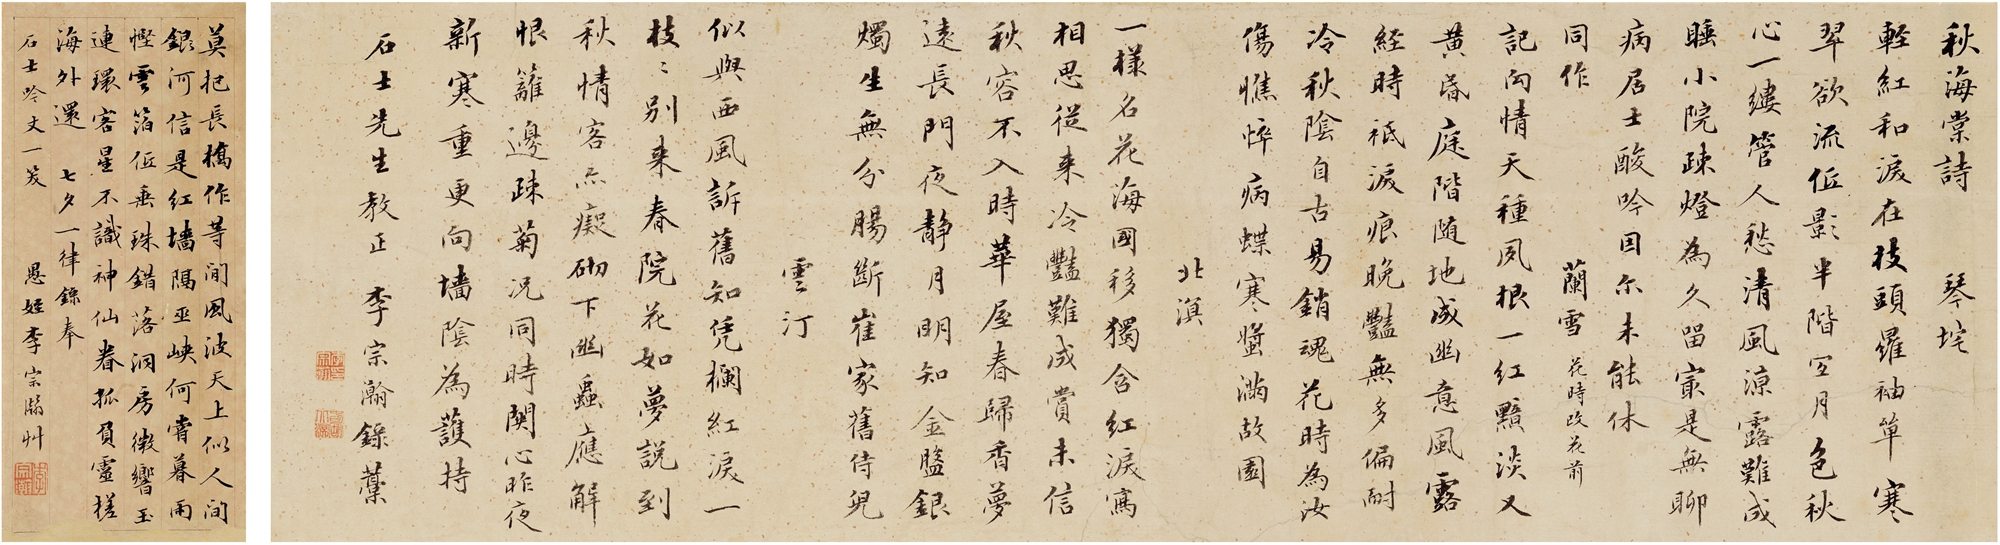 秋海棠詩 琴垞
輕紅和淚在枝頭羅袖單寒
翠欲流低影半階空月色秋
心一縷管人愁清風涼露難成
睡小院疎燈為久留寂是無聊
病居士酸吟因尔未能休
同作 蘭雪 花時改花前
記向情天種夙根一紅黯淡又
黃昏庭階隨地成幽意風露
經時祗淚痕晚豔無多偏耐
冷秋陰自古易銷魂花時為汝
傷憔悴病蝶寒螿滿故園
北溟
一樣名花海國移獨含紅淚寫
相思從来冷豔難成賞未信
秋容不入時華屋春歸香夢
遠長門夜靜月明知金盤銀
燭生無分腸斷崔家舊侍兒
雲汀
似與西風訴舊知凭欄紅淚一
枝〻別来春院花如夢說到
秋情客亦癡砌下幽蟲應解
恨籬邊疎菊況同時關心昨夜
新寒重更向墻陰為護持
石士先生教正 李宗瀚錄藁
莫把長橋作等閒風波天上似人間
銀河信是紅墻隔巫峽何嘗暮雨
慳雲箔低垂珠錯落洞房微響玉
連環客星不識神仙眷孤負靈槎
海外還 七夕一律錄奉
石士吟丈一笑 愚姪李宗瀚艸